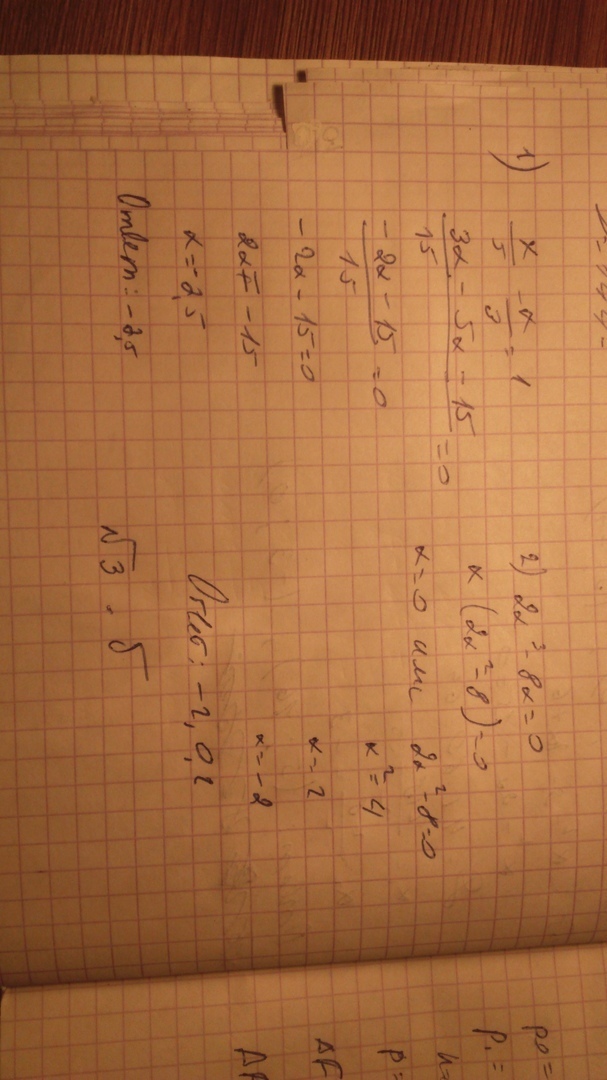 1)
x/5 - x/3 = 1
3x - 5x - 15/15 = 0
-2x - 15/15 = 0
-2x - 15 = 0
2x = -15
x = -2,5
Ответ: -2,5
2) 2x³ - 8x = 0
x (2x² - 8) = 0
x = 0 или 2x² - 8 = 0
x² = 4
x = 2
x = -2
Ответ: -2, 0, 2
√3 ·